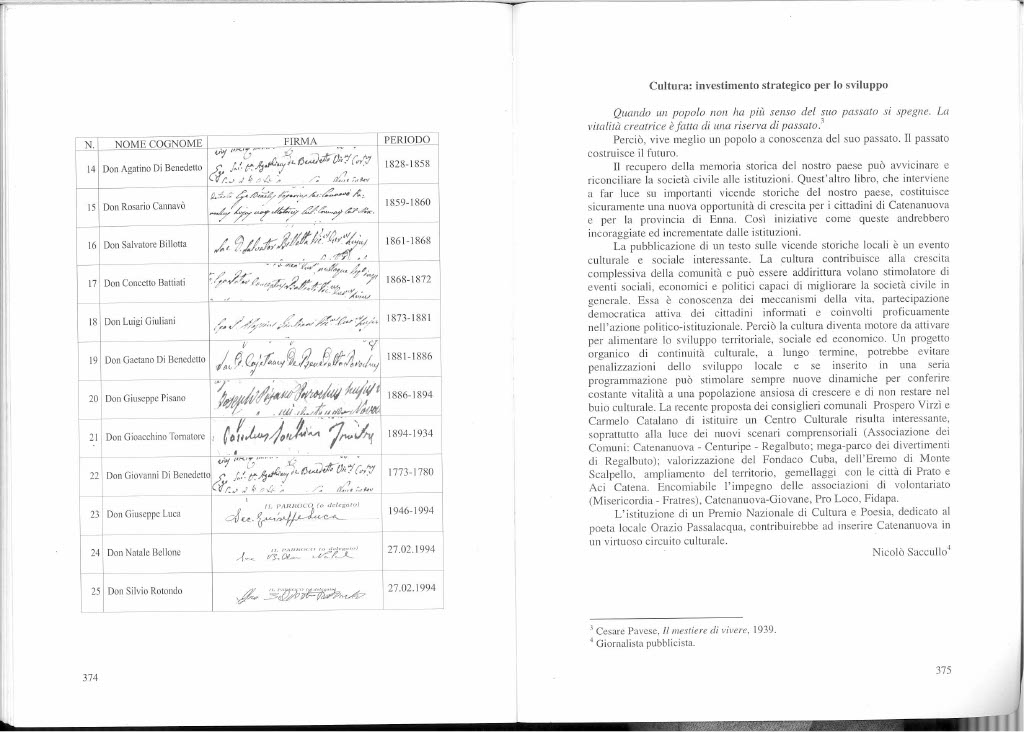 N. NOME COGNOME FIRMA PERIODO
14 Don Agatino Di Benedetto 1828-1858
15 Don Rosario Cannavò 1859-1860
16 Don Salvatore Billotta 1861-1868
17 Don Concetto Battiati 1868-1872
18 Don Luigi Giuliani 1873-1881
19 Don Gaetano Di Benedetto 1881-1886
20 Don Giuseppe Pisano 1886-1894
21 Don Gioacchino Tornatore 1894-1934
22 Don Giovanni Di Benedetto 1773-1780
23 Don Giuseppe Luca IL PARROCO (o delegato) Sac. Giuseppe Luca 1946-1994
24 Don Natale Bellone IL PARROCO (o delegato) 27.02.1994
25 Don Silvio Rotondo 27.02.1994
374
Cultura: investimento strategico per lo sviluppo
Quando un popolo non ha più senso del suo passato si spegne. La
vitalità creatrice è fatta di una riserva di passato.³
Perciò, vive meglio un popolo a conoscenza del suo passato. Il passato
costruisce il futuro.
Il recupero della memoria storica del nostro paese può avvicinare e
riconciliare la società civile alle istituzioni. Quest'altro libro, che interviene
a far luce su importanti vicende storiche del nostro paese, costituisce
sicuramente una nuova opportunità di crescita per i cittadini di Catenanuova
e per la provincia di Enna. Così iniziative come queste andrebbero
incoraggiate ed incrementate dalle istituzioni.
La pubblicazione di un testo sulle vicende storiche locali è un evento
culturale e sociale interessante. La cultura contribuisce alla crescita
complessiva della comunità e può essere addirittura volano stimolatore di
eventi sociali, economici e politici capaci di migliorare la società civile in
generale. Essa è conoscenza dei meccanismi della vita, partecipazione
democratica attiva dei cittadini informati e coinvolti proficuamente
nell'azione politico-istituzionale. Perciò la cultura diventa motore da attivare
per alimentare lo sviluppo territoriale, sociale ed economico. Un progetto
organico di continuità culturale, a lungo termine, potrebbe evitare
penalizzazioni dello sviluppo locale e se inserito in una seria
programmazione può stimolare sempre nuove dinamiche per conferire
costante vitalità a una popolazione ansiosa di crescere e di non restare nel
buio culturale. La recente proposta dei consiglieri comunali Prospero Virzì e
Carmelo Catalano di istituire un Centro Culturale risulta interessante,
soprattutto alla luce dei nuovi scenari comprensoriali (Associazione dei
Comuni: Catenanuova - Centuripe - Regalbuto; mega-parco dei divertimenti
di Regalbuto); valorizzazione del Fondaco Cuba, dell'Eremo di Monte
Scalpello, ampliamento del territorio, gemellaggi con le città di Prato e
Aci Catena. Encomiabile l'impegno delle associazioni di volontariato
(Misericordia - Fratres), Catenanuova-Giovane, Pro Loco, Fidapa.
L'istituzione di un Premio Nazionale di Cultura e Poesia, dedicato al
poeta locale Orazio Passalacqua, contribuirebbe ad inserire Catenanuova in
un virtuoso circuito culturale.
Nicolò Saccullo⁴
³ Cesare Pavese, Il mestiere di vivere, 1939.
⁴ Giornalista pubblicista.
375